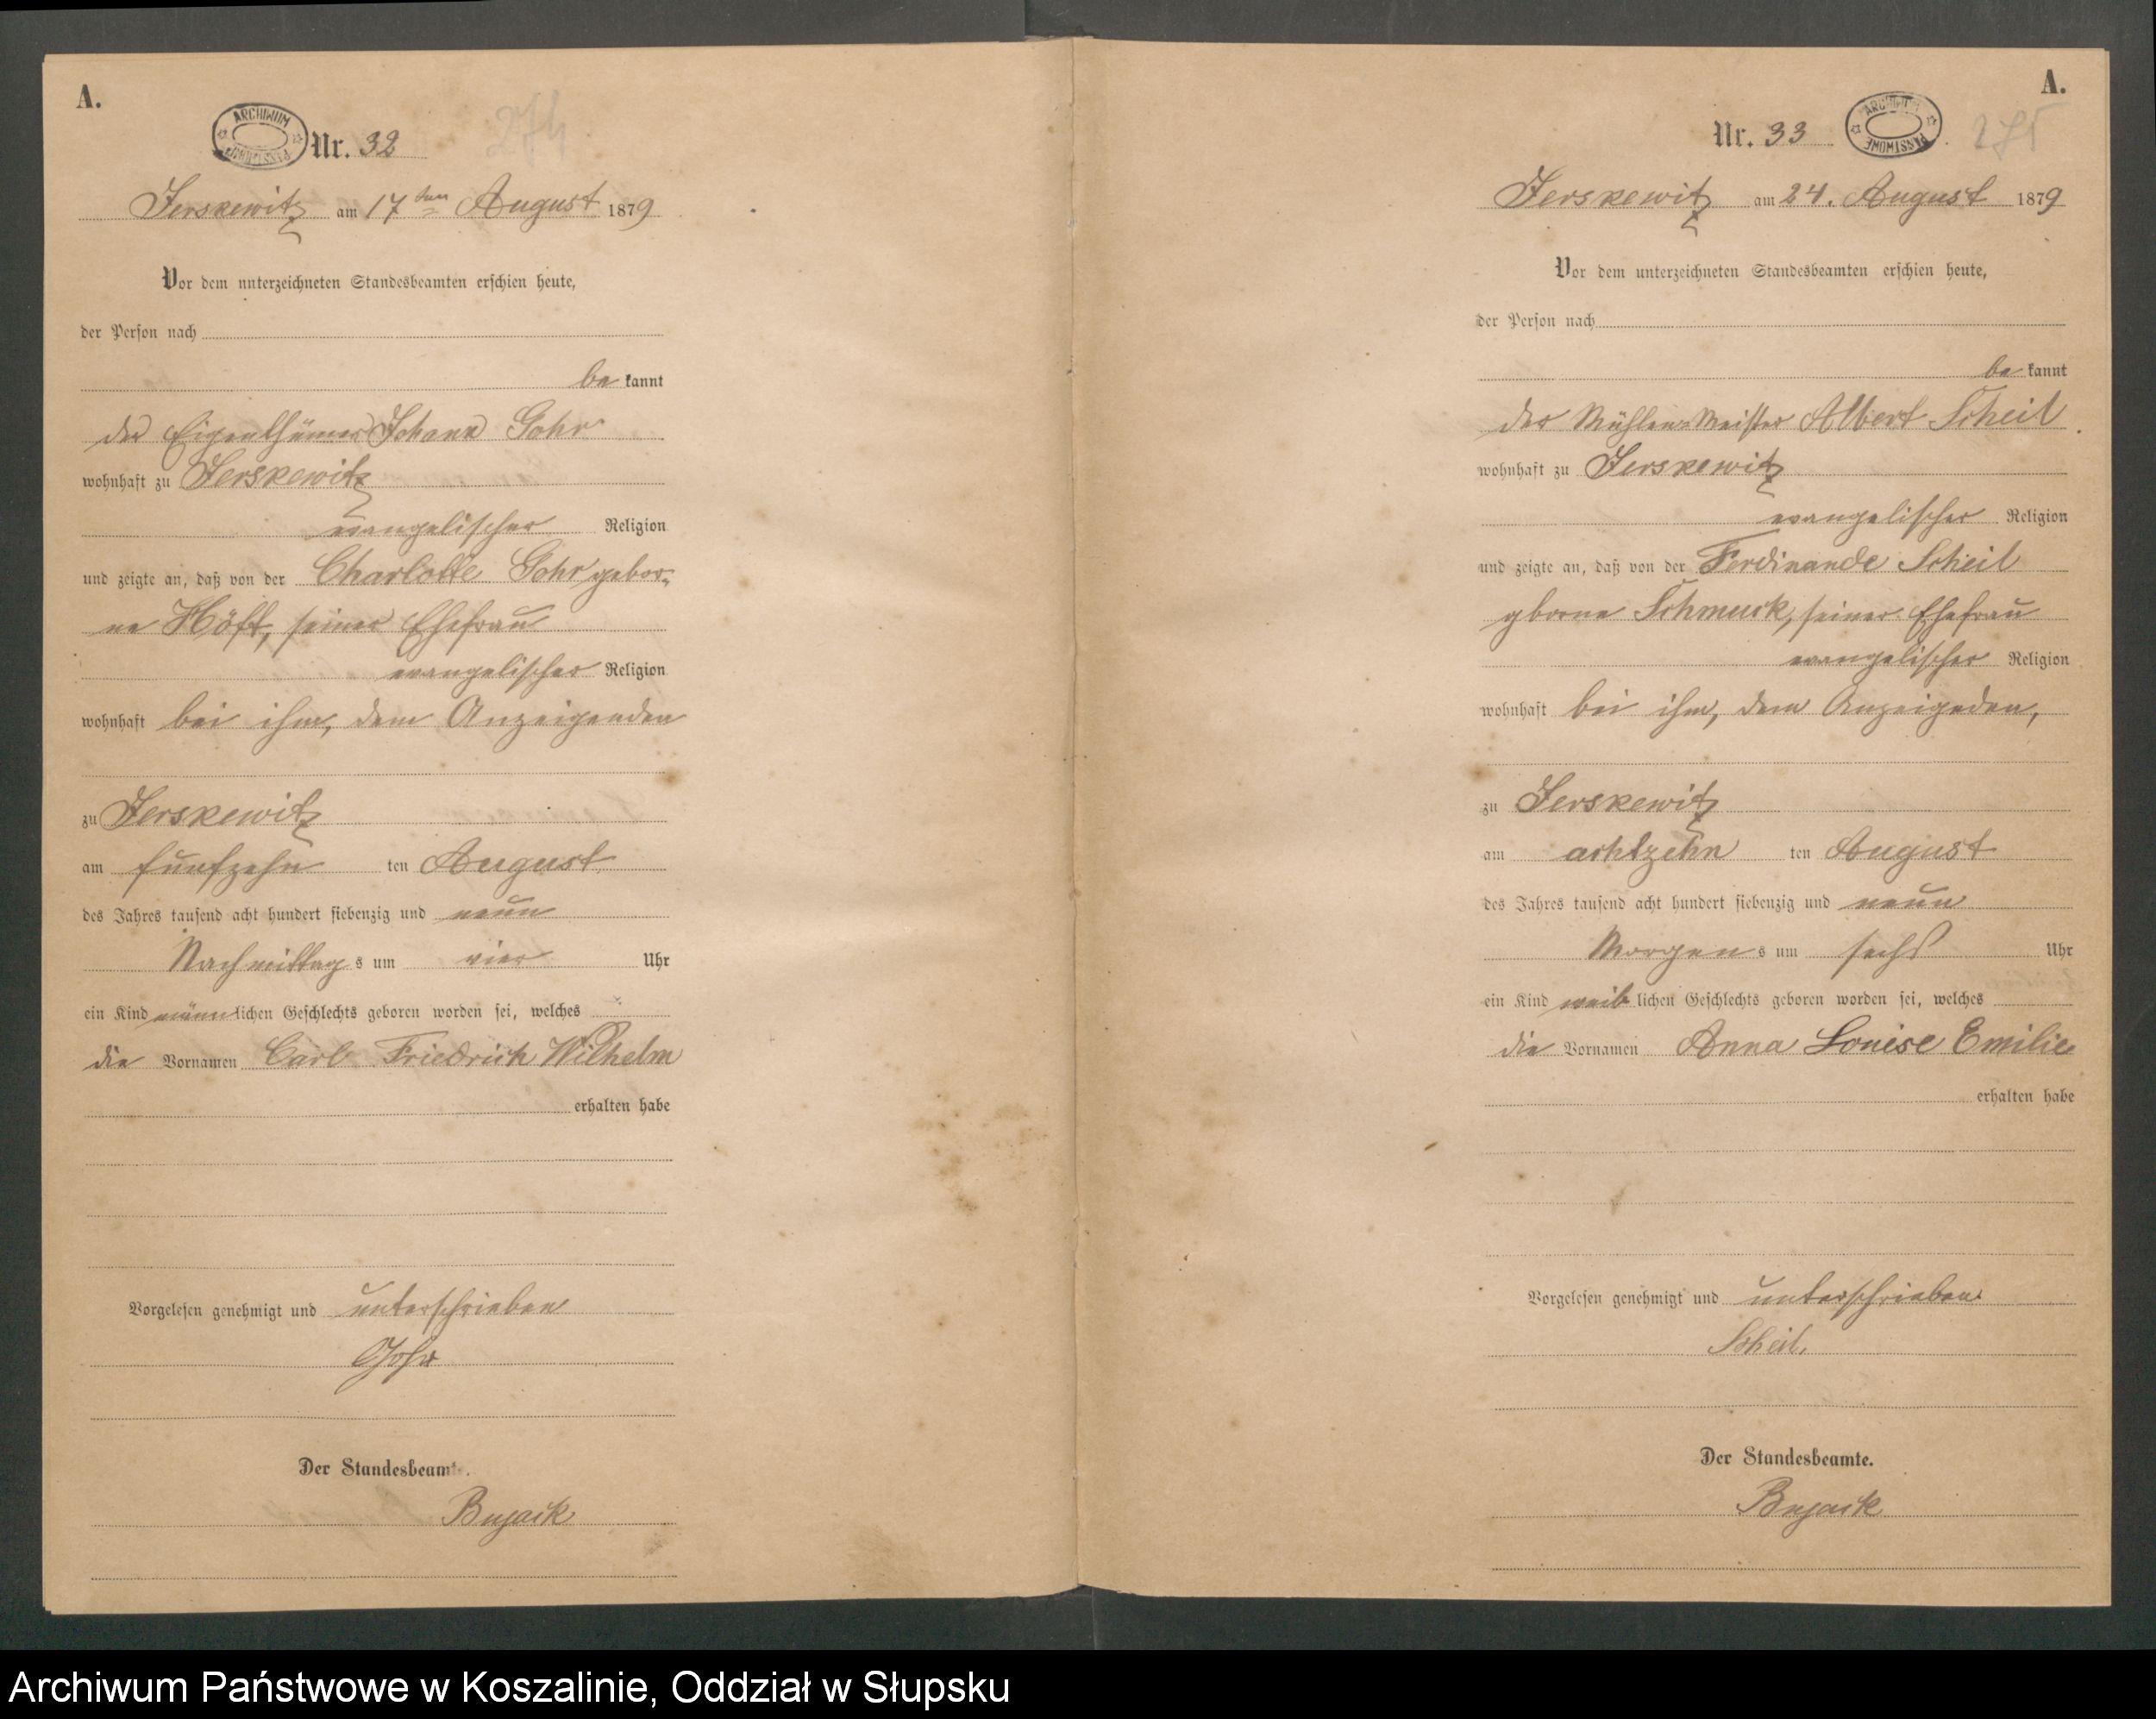 A.
ARCHIWUM PAŃSTWOWE
Nr. 32
274
Jerskewitz am 17ten August 1879
Vor dem unterzeichneten Standesbeamten erschien heute,
der Person nach
be kannt
der Eigenthümer Johann Gohr
wohnhaft zu Jerskewitz
evangelischer Religion
und zeigte an, daß von der Charlotte Gohr gebor-
ne Höft, seiner Ehefrau
evangelischer Religion
wohnhaft bei ihm, dem Anzeigenden
zu Jerskewitz
am fünfzehn ten August
des Jahres tausend acht hundert siebenzig und neun
Nachmittag s um vier Uhr
ein Kind männlichen Geschlechts geboren worden sei, welches
die Vornamen Carl Friedrich Wilhelm
erhalten habe
Vorgelesen genehmigt und unterschrieben
Gohr
Der Standesbeamte.
Bujack
A.
Nr. 33
ARCHIWUM PAŃSTWOWE
275
Jerskewitz am 24. August 1879
Vor dem unterzeichneten Standesbeamten erschien heute,
der Person nach
be kannt
der Mühlen-Meister Albert Scheil
wohnhaft zu Jerskewitz
evangelischer Religion
und zeigte an, daß von der Ferdinande Scheil
gborne Schmuck, seiner Ehefrau
evangelischer Religion
wohnhaft bei ihm, dem Anzeigeden,
zu Jerskewitz
am achtzehn ten August
des Jahres tausend acht hundert siebenzig und neun
Morgen s um sechs Uhr
ein Kind weib lichen Geschlechts geboren worden sei, welches
die Vornamen Anna Louise Emilie
erhalten habe
Vorgelesen genehmigt und unterschrieben
Scheil.
Der Standesbeamte.
Bujack
Archiwum Państwowe w Koszalinie, Oddział w Słupsku